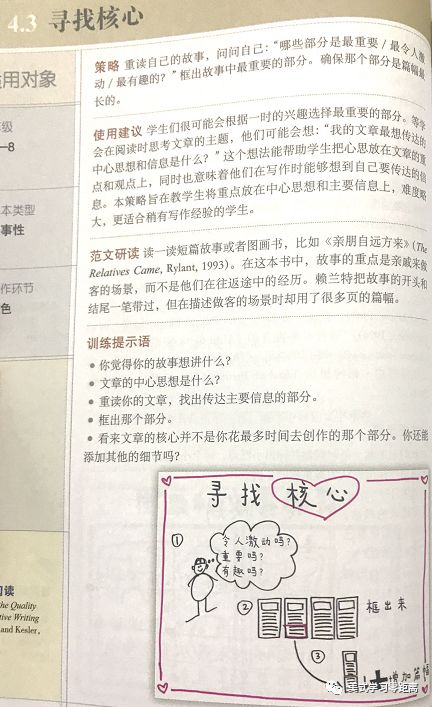 4.3 寻找核心
用对象
级
—8
本类型
事性
作环节
色
阅读
he Quality
tive Writing
and Kesler,
策略 重读自己的故事，问问自己：“哪些部分是最重要/最令人激
动/最有趣的？”框出故事中最重要的部分。确保那个部分是篇幅最
长的。
使用建议 学生们很可能会根据一时的兴趣选择最重要的部分。等学
会在阅读时思考文章的主题，他们可能会想：“我的文章最想传达的
中心思想和信息是什么？”这个想法能帮助学生把心思放在文章的重
点和观点上，同时也意味着他们在写作时能够想到自己要传达的信
息。本策略旨在教学生将重点放在中心思想和主要信息上，难度略
大，更适合稍有写作经验的学生。
范文研读 读一读短篇故事或者图画书，比如《亲朋自远方来》(The
Relatives Came, Rylant, 1993)。在这本书中，故事的重点是亲戚来做
客的场景，而不是他们在往返途中的经历。赖兰特把故事的开头和
结尾一笔带过，但在描述做客的场景时却用了很多页的篇幅。
训练提示语
● 你觉得你的故事想讲什么？
● 文章的中心思想是什么？
● 重读你的文章，找出传达主要信息的部分。
● 框出那个部分。
● 看来文章的核心并不是你花最多时间去创作的那个部分。你还能
添加其他的细节吗？
寻找核心
①
令人激动吗？
重要吗？
有趣吗？
② 框出来
③
增加篇幅
美式学习零距离